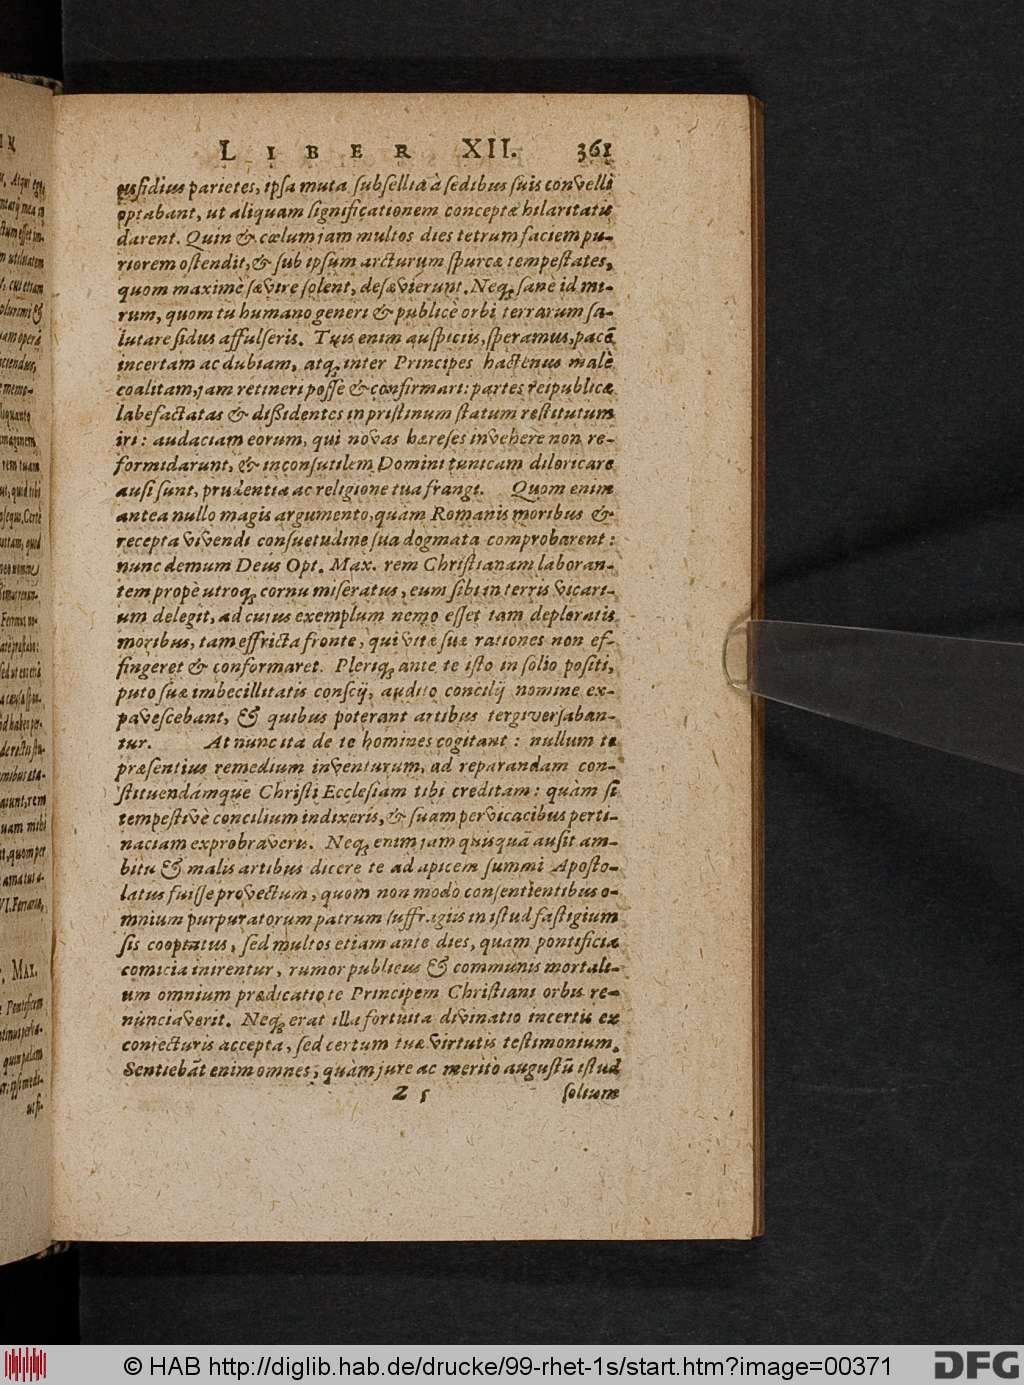 LIBER XII. 361
usfidius parietes, ipsa muta subsellia à sedibus suis convelli
optabant, ut aliquam significationem conceptæ hilaritatis
darent. Quin & cœlum jam multos dies tetrum faciem pu-
riorem ostendit, & sub ipsum arcturum spurcæ tempestates,
quom maximè sævire solent, desævierunt. Neq; sane id mi-
rum, quom tu humano generi & publicè orbi terrarum sa-
lutare sidus affulseris. Tuis enim auspiciis, speramus, pacē
incertam ac dubiam, atq; inter Principes hactenus malè
coalitam, jam retineri posse & confirmari: partes reipublicæ
labefactatas & dißidentes in pristinum statum restitutum
iri: audaciam eorum, qui novas hæreses invehere non re-
formidarunt, & inconsutilem Domini tunicam diloricare
ausi sunt, prudentia ac religione tua frangi. Quom enim
antea nullo magis argumento, quàm Romanis moribus &
recepta vivendi consuetudine sua dogmata comprobarent:
nunc demum Deus Opt. Max. rem Christianam laboran-
tem propè utroq; cornu miseratus, eum sibi in terris vicari-
um delegit, ad cujus exemplum nemo esset tam deploratis
moribus, tam effricta fronte, qui vitæ suæ rationes non ef-
fingeret & conformaret. Pleriq; ante te isto in solio positi,
puto suæ imbecillitatis conscij, audito concilij nomine ex-
pavescebant, & quibus poterant artibus tergiversaban-
tur. At nunc ita de te homines cogitant: nullum te
præsentius remedium inventurum, ad reparandam con-
stituendamque Christi Ecclesiam tibi creditam: quàm si
tempestivè concilium indixeris, & suam pervicacibus perti-
naciam exprobraveris. Neq; enim jam quisquā ausit am-
bitu & malis artibus dicere te ad apicem summi Aposto-
latus fuisse provectum, quom non modò consentientibus o-
mnium purpuratorum patrum suffragiis in istud fastigium
sis cooptatus, sed multos etiam ante dies, quam pontificia
comicia inirentur, rumor publicus & communis mortali-
um omnium prædicatio te Principem Christiani orbis re-
nunciaverit. Neq; erat illa fortuita divinatio incertis ex
conjecturis accepta, sed certum tuæ virtutis testimonium.
Sentiebāt enim omnes, quàm jure ac meritò augustū istud
Z 5 solium
© HAB http://diglib.hab.de/drucke/99-rhet-1s/start.htm?image=00371
DFG